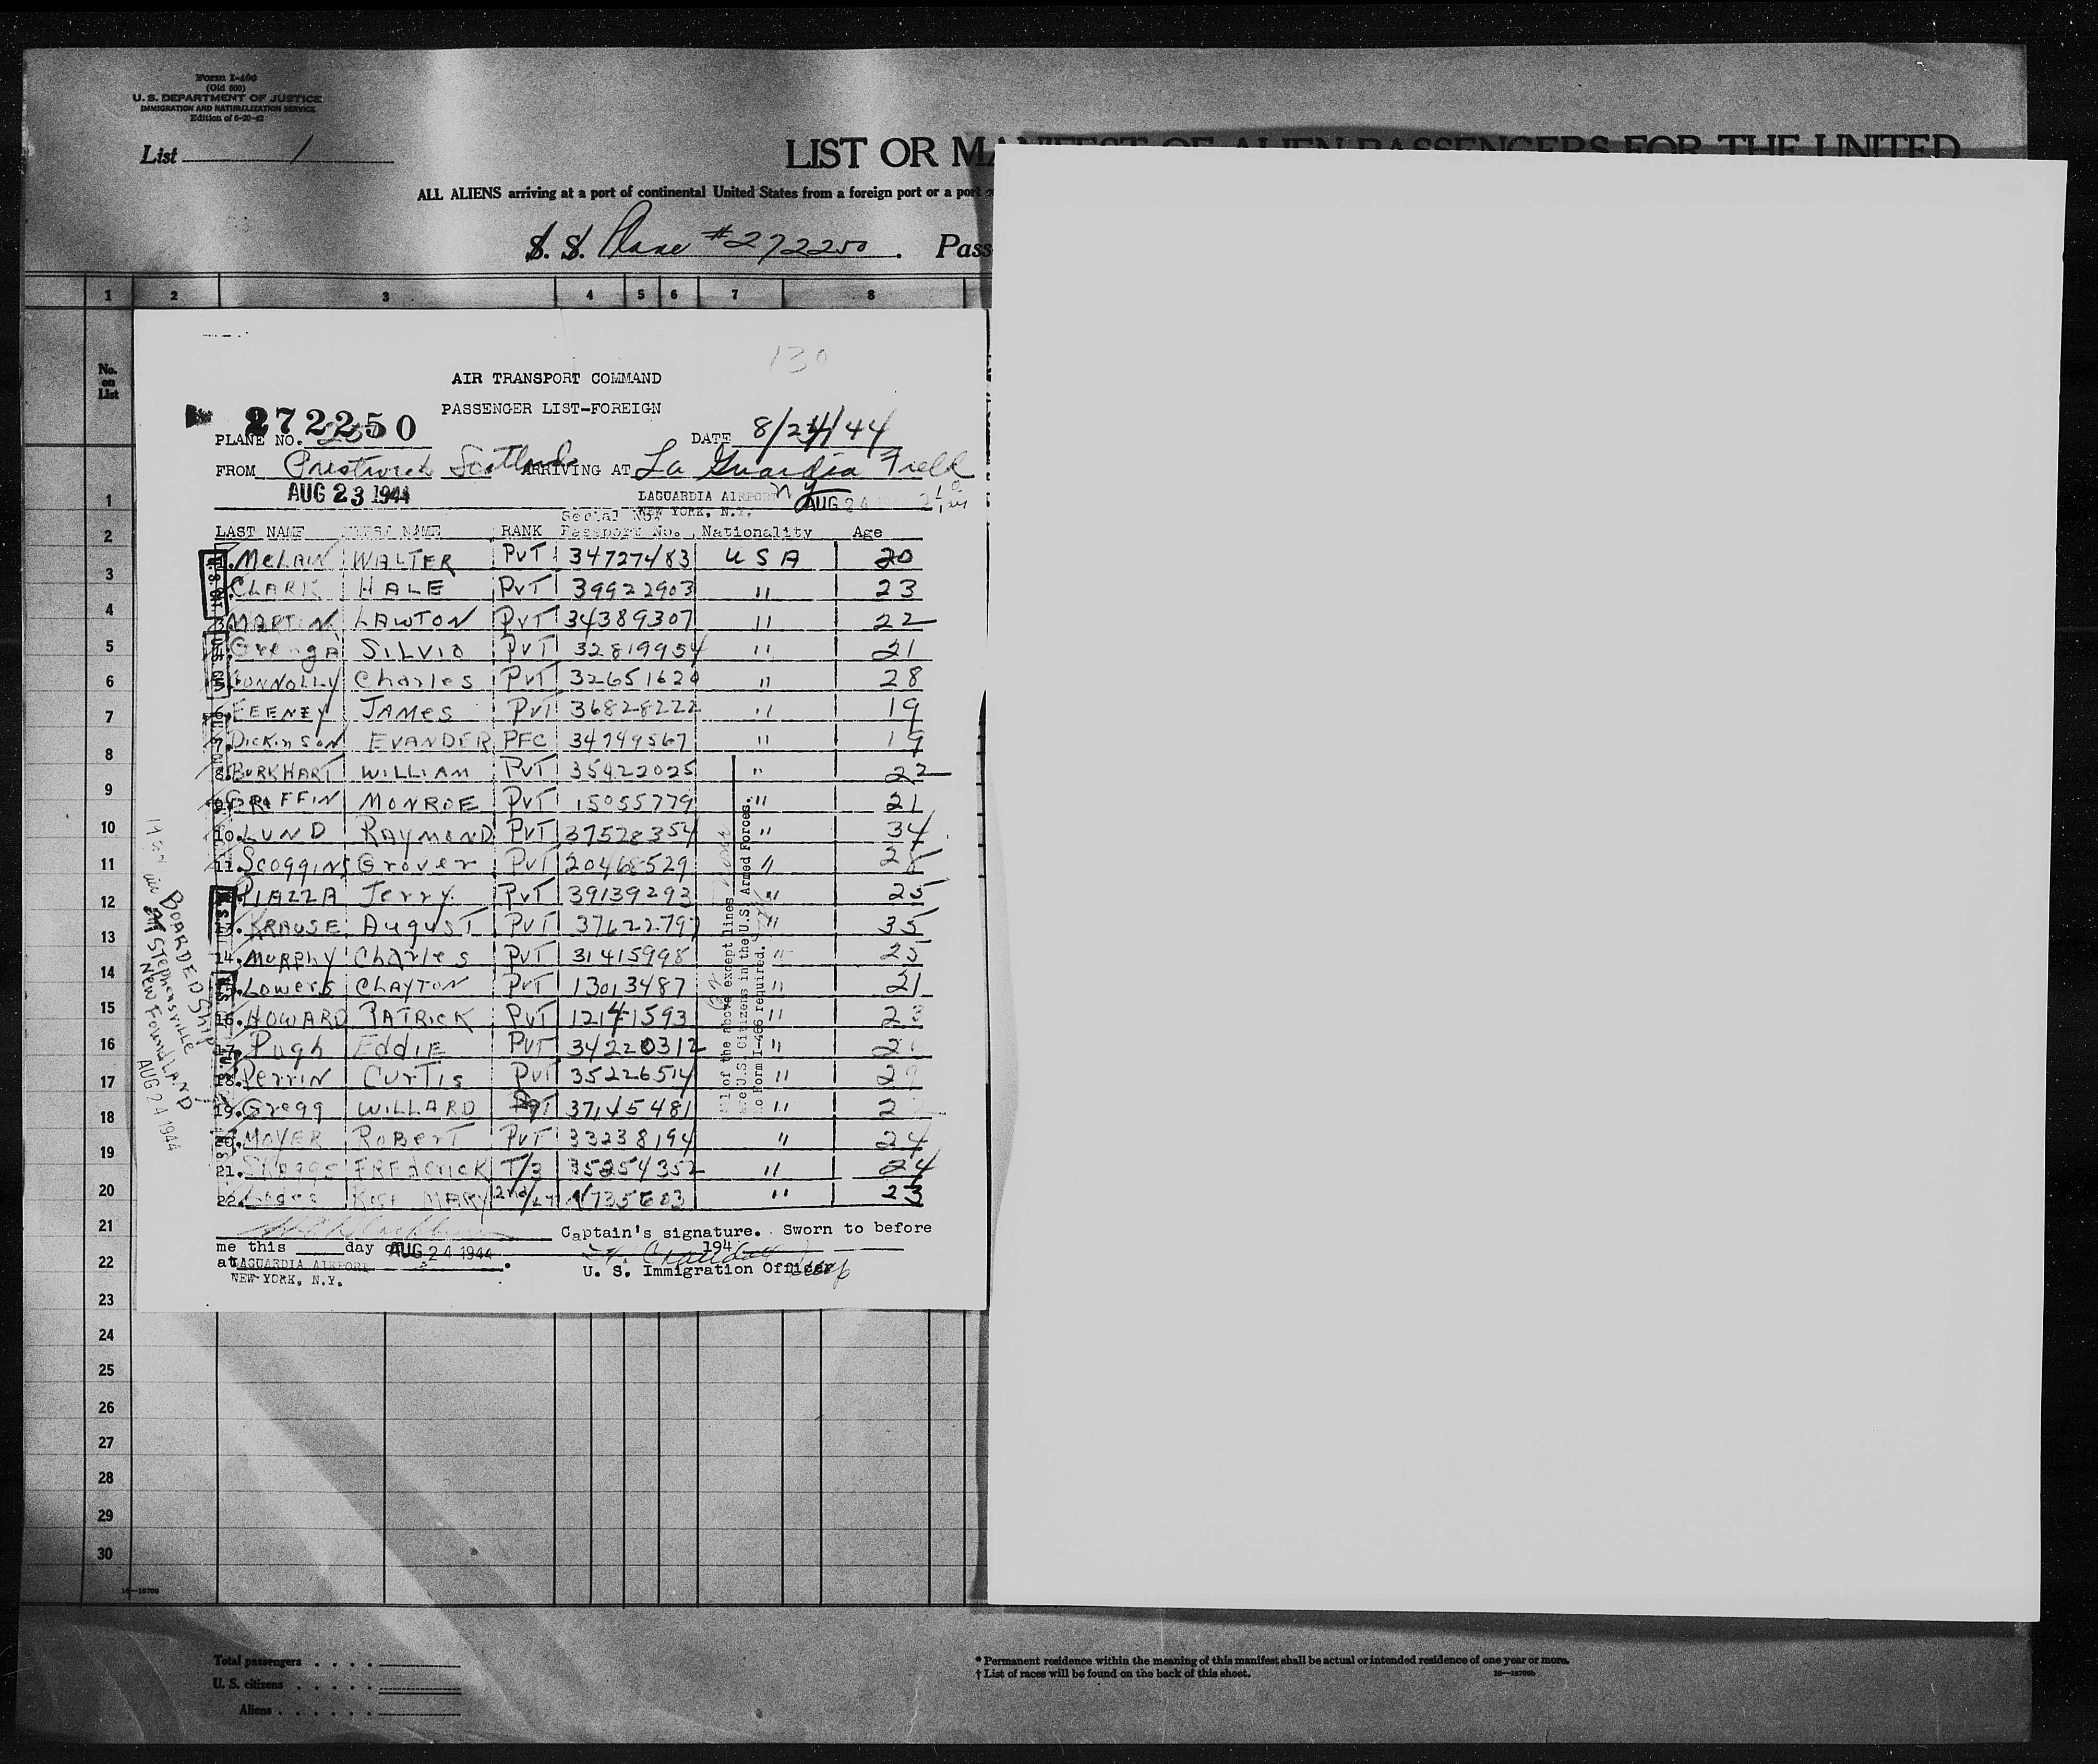 Form I-400
(Old 500)
U. S. DEPARTMENT OF JUSTICE
IMMIGRATION AND NATURALIZATION SERVICE
Edition of 6-20-42
List 1
LIST OR MANIFEST OF ALIEN PASSENGERS FOR THE UNITED
ALL ALIENS arriving at a port of continental United States from a foreign port or a port
S. S. Plane #272250. Pass
1 2 3 4 5 6 7 8
No. on List
130
AIR TRANSPORT COMMAND
PASSENGER LIST-FOREIGN
272250
PLANE NO. DATE 8/24/44
FROM Prestwick Scotland ARRIVING AT La Guardia Field
AUG 23 1944 LAGUARDIA AIRPORT NY AUG 24
NEW YORK, N.Y.
LAST NAME FIRST NAME RANK Serial No. Passport No. Nationality Age
McLAIN WALTER PVT 34727483 USA 20
CLARK HALE PVT 39922903 " 23
3. MARTIN LAWTON PVT 34389307 " 22
SILVIO PVT 32819954 " 21
5. CONNOLLY Charles PVT 32651620 " 28
6. FEENEY JAMES PVT 36828222 " 19
7. DICKINSON EVANDER PFC 34749567 " 19
8. BURKHART WILLIAM PVT 35422025 " 22
GRIFFIN MONROE PVT 15055779 " 21
10. LUND RAYMOND PVT 37528354 " 34
11. SCOGGINS Grover PVT 20468529 "
PIAZZA Jerry PVT 39139293 " 25
13. KRAUSE AugusT PVT 37622797 " 35
14. MURPHY Charles PVT 31415998 " 25
15. Lowers CLAYTON PVT 13013487 " 21
16. HOWARD PATRICK PVT 12141593 " 23
17. Pugh EDDIE PVT 34220312 "
18. Perrin CURTIS PVT 35226514 " 29
19. Gregg WILLARD 37145481 "
20. MOYER ROBERT PVT 33238194 " 24
21. FREDERICK T/3 35254352 " 24
22. ROSE MARY 2nd/LT "
All of the above except lines
are U.S. Citizens in the U.S. Armed Forces.
No Form I-466 required.
BOARDED Ship
AT STephensville
NEW FoundLAND
AUG 24 1944
Captain's signature. Sworn to before
me this day of AUG 24 1944 194
at LAGUARDIA AIRPORT
NEW YORK, N.Y.
U. S. Immigration Officer
1
2
3
4
5
6
7
8
9
10
11
12
13
14
15
16
17
18
19
20
21
22
23
24
25
26
27
28
29
30
16—18700
Total passengers
U. S. citizens
Aliens
* Permanent residence within the meaning of this manifest shall be actual or intended residence of one year or more.
† List of races will be found on the back of this sheet.